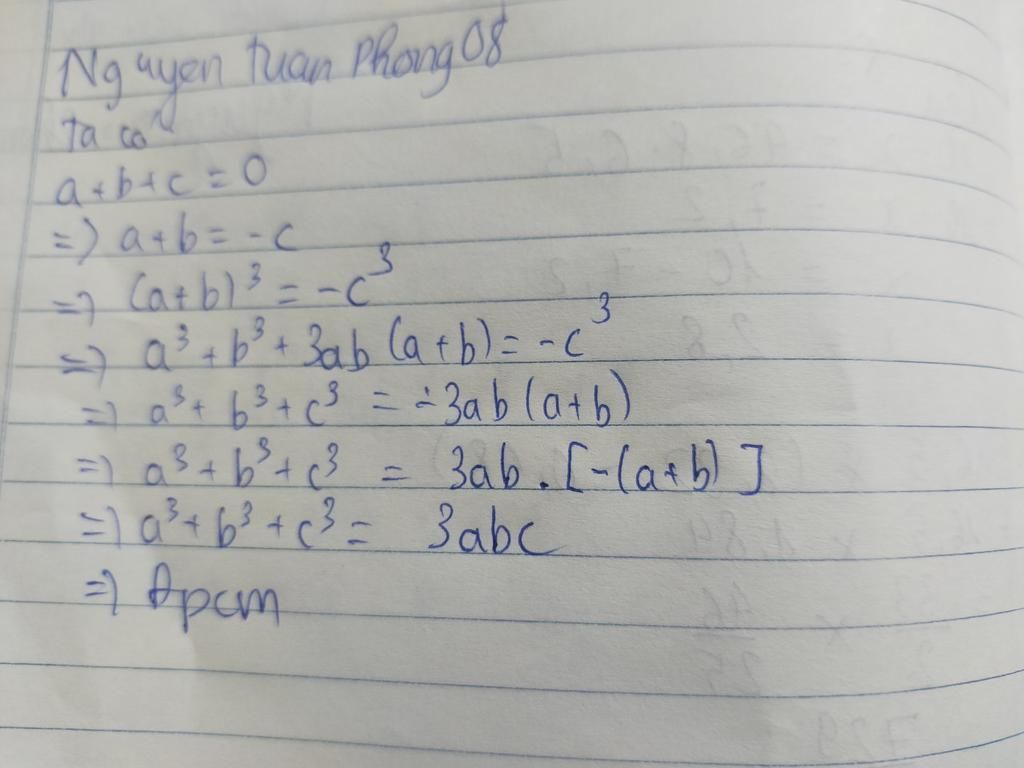 Nguyen tuan Phong08
Ta có
a+b+c=0
=) a+b=-c
=) (a+b)³=-c³
=) a³+b³+3ab(a+b)=-c³
=) a³+b³+c³ = -3ab(a+b)
=) a³+b³+c³ = 3ab.[-(a+b)]
=) a³+b³+c³= 3abc
=) Đpcm